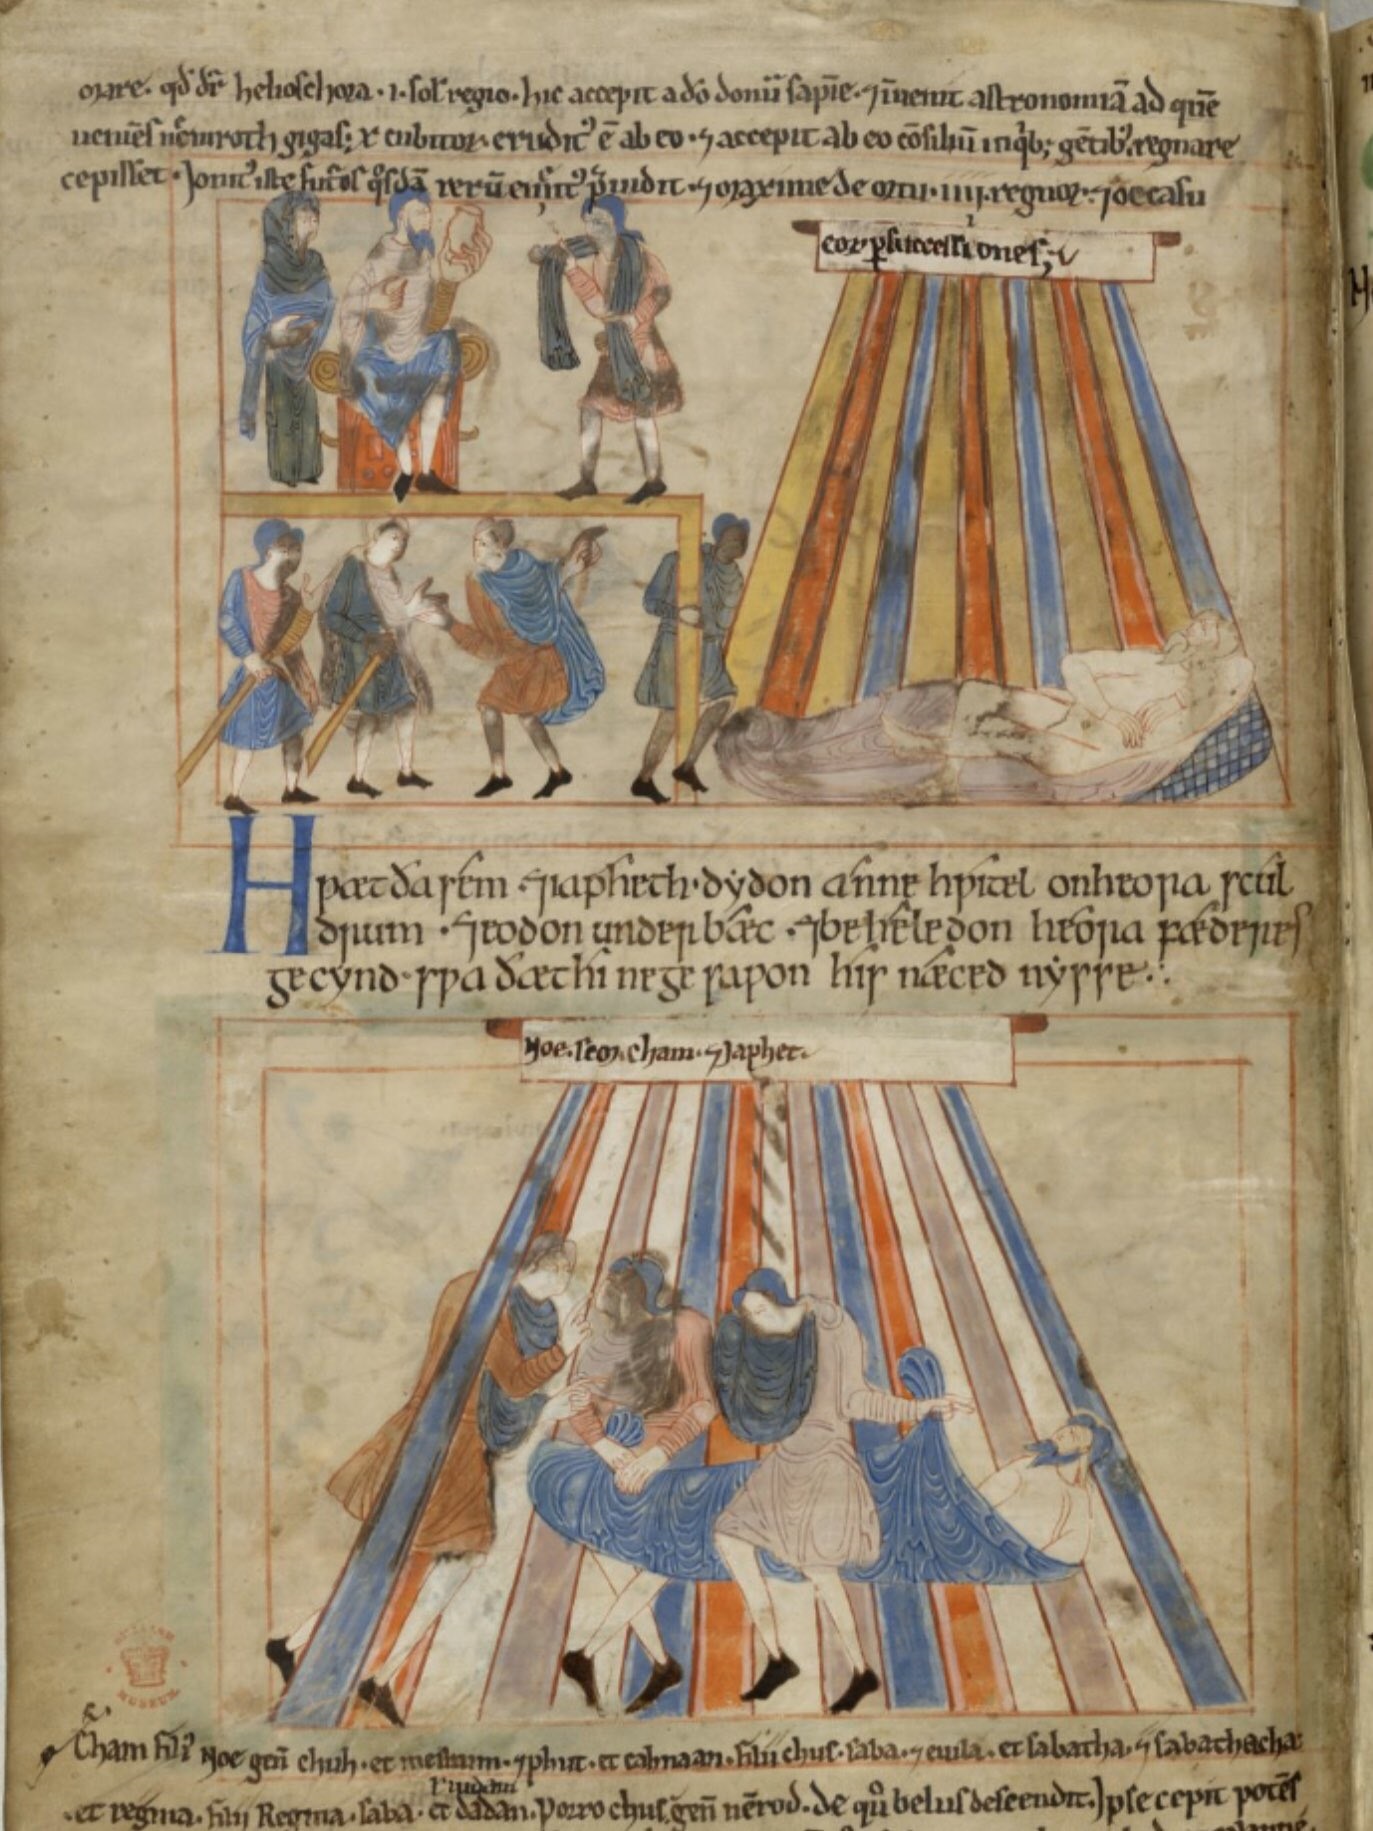 mare. qd dr heliochora .i. solis regio. hic accepit a do donū sapīe. ⁊ īuenit astronomiā ad quē
ueniēs nēmroth gigas; x cubitoꝝ erudit᾽ ē ab eo. ⁊ accepit ab eo cōsiliū in qib; gētib᾽ regnare
cepisset. Jonit᾽ iste rerū ⁊ maxime de ortu .iiij. regnoꝝ. ⁊ occasu
eoꝝ p successiones;
Hƿæt ða sem ⁊ iapheth dẏdon anne hƿitel on heora scul
drum ⁊ eodon underbæc ⁊ beheledon heora fæderes
gecẏnd sƿa ðæt hi ne gesaƿon his næced nẏsse
Noe. sem. cham. ⁊ Japhet.
Cham fili᾽ Noe geñ chuh. et mesraim. ⁊ phut. et cahnaan. filii chus. saba. ⁊ euila. et sabatha. ⁊ sabathacha
et regma. filij Regma. saba. et dadan. Porro chus. geñ nērod. de qo belus descendit. Ipse cepit potēs
BRITISH
MUSEUM